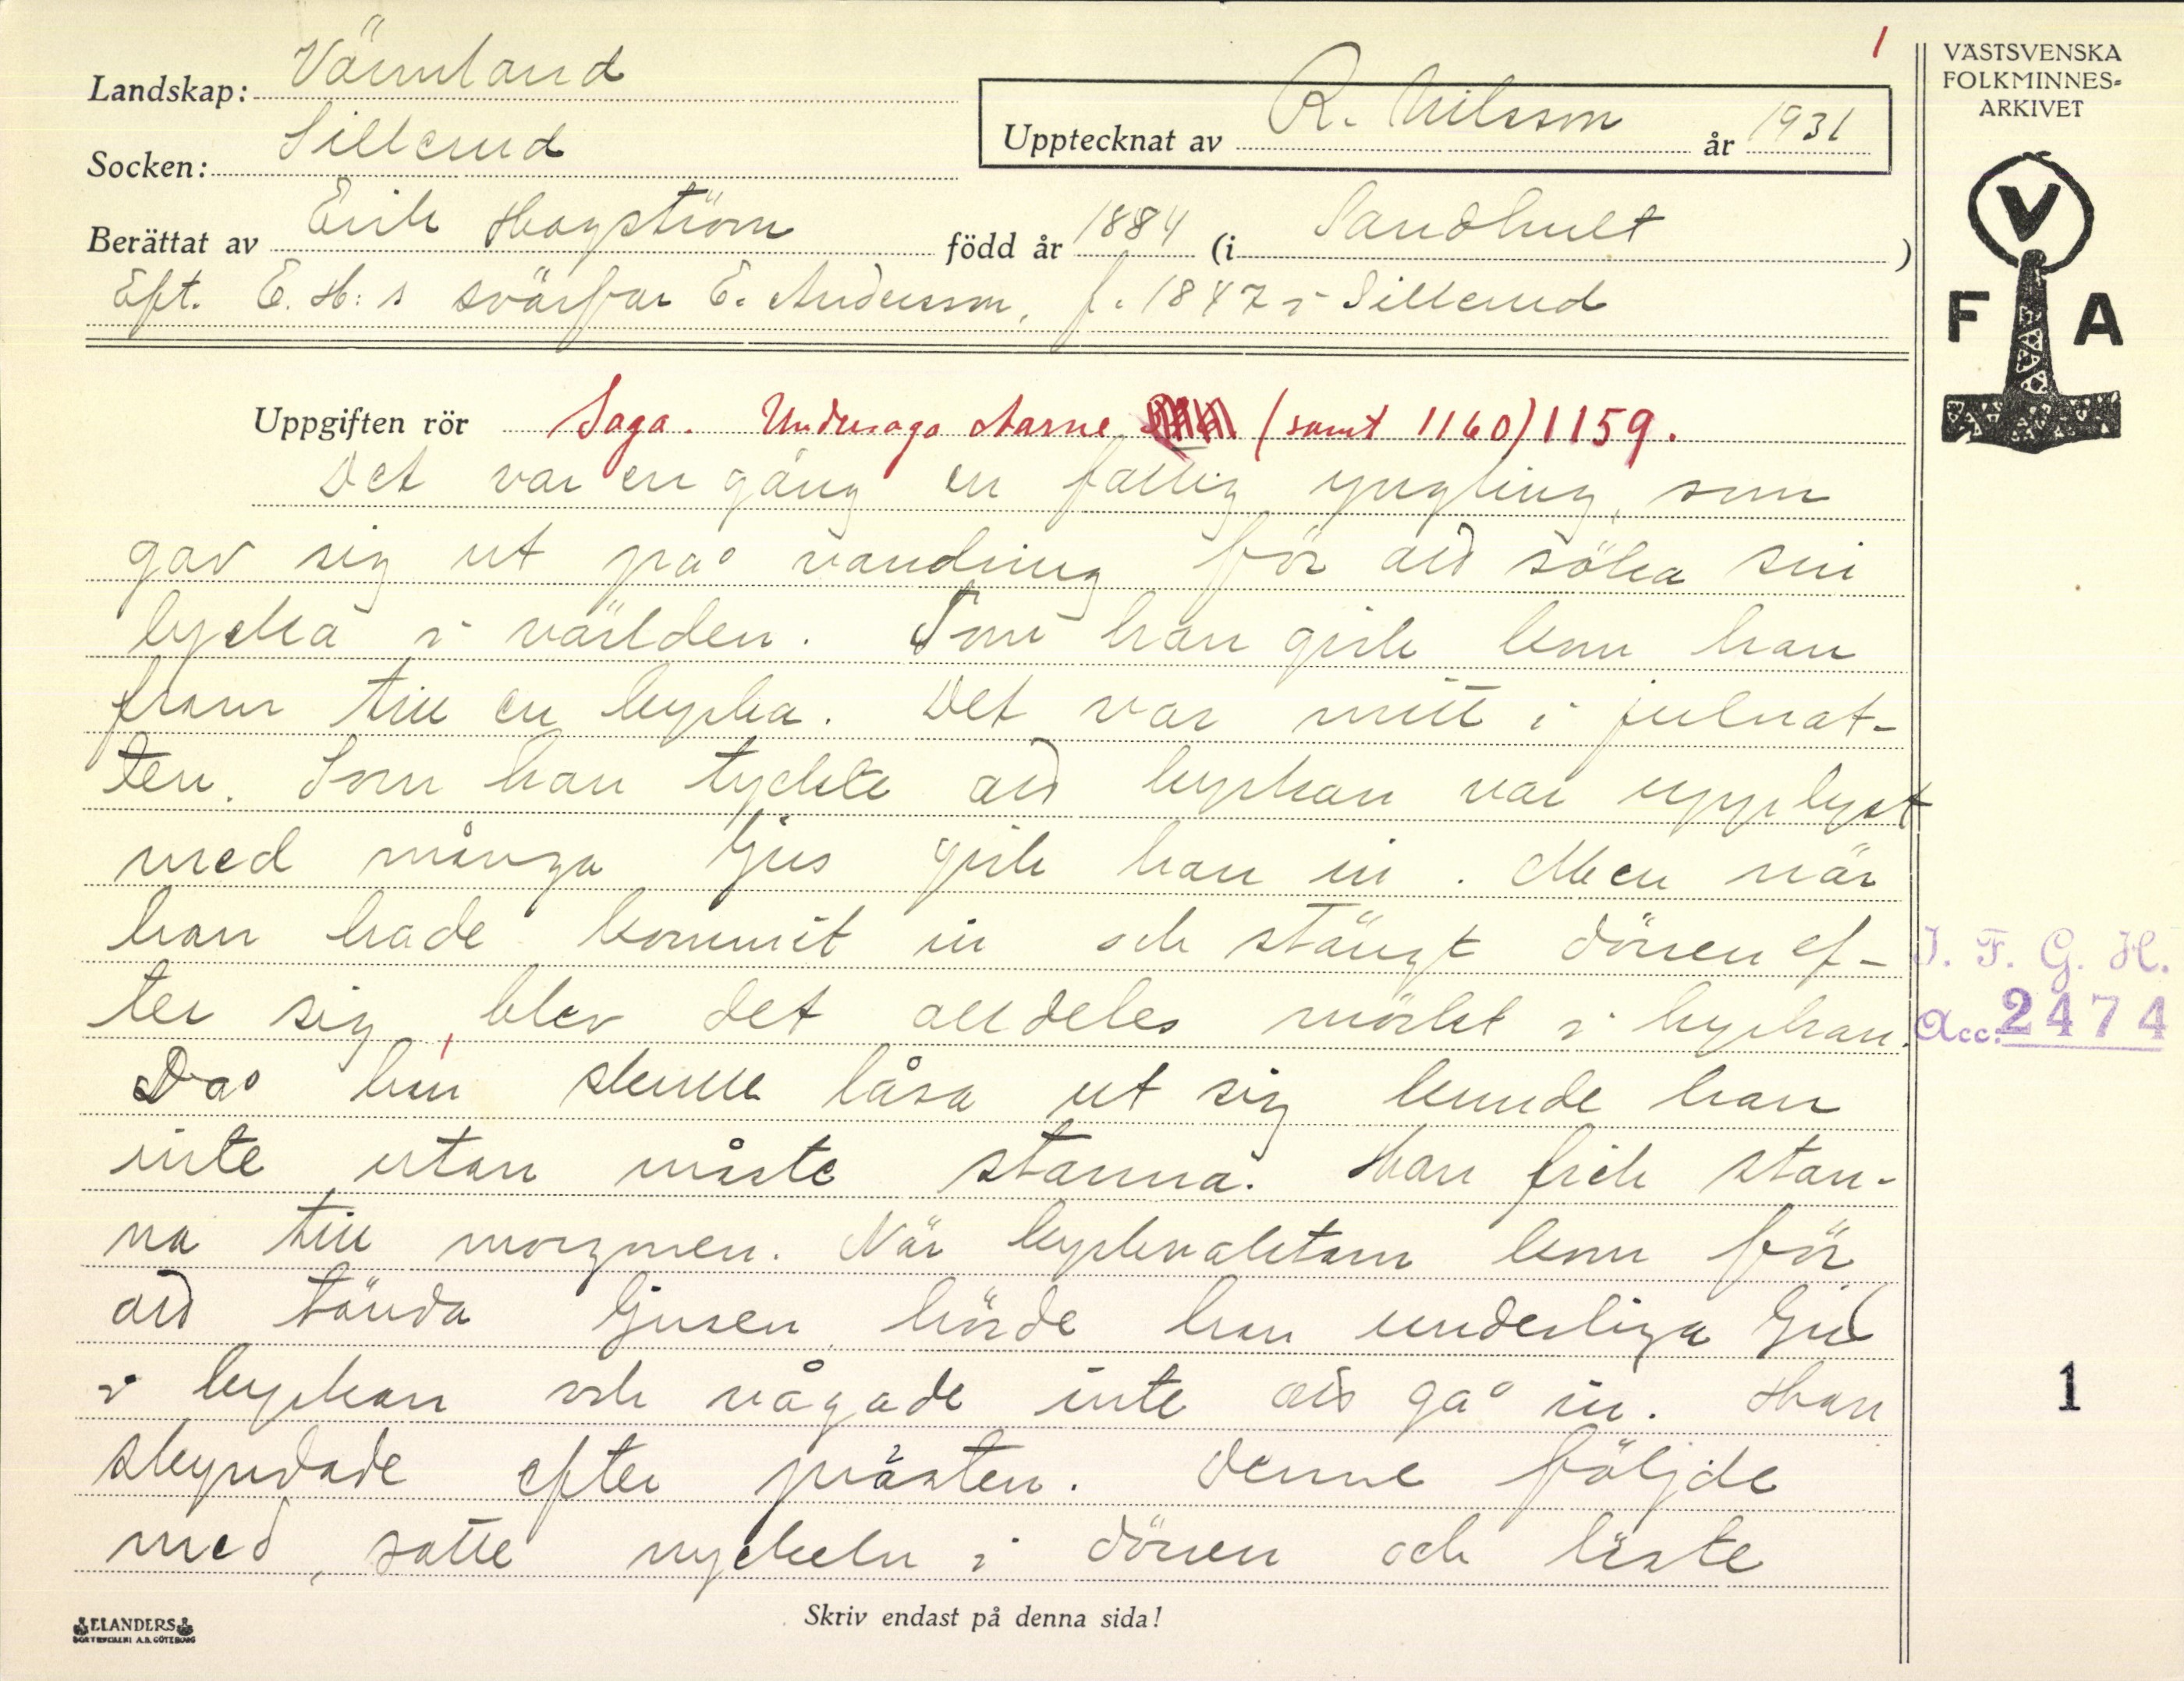 1
VÄSTSVENSKA
FOLKMINNES-
ARKIVET
Landskap: Värmland
Socken: Sillerud
Upptecknat av R. Nilsson år 1931
Berättat av Erik Hagström född år 1884 (i Sandhult)
Eft. E. H:s svärfar E. Andersson, f. 1847 i Sillerud
V
F A
Uppgiften rör Saga. Undersaga Aarne (samt 1160) 1159.
Det var en gång en fattig yngling, som
gav sig ut på vandring för att söka sin
lycka i världen. Som han gick kom han
fram till en kyrka. Det var mitt i julnat-
ten. Som han tyckte att kyrkan var upplyst
med många ljus gick han in. Men när
han hade kommit in och stängt dörren ef-
ter sig, blev det alldeles mörkt i kyrkan.
Då han skulle låsa ut sig kunde han
inte utan måste stanna. Han fick stan-
na till morgonen. När kyrkvaktarn kom för
att tända ljusen hörde han underliga ljud
i kyrkan och vågade inte att gå in. Han
skyndade efter prästen. Denne följde
med, satte nyckeln i dörren och läste
I. F. G. H.
Acc. 2474
1
ELANDERS
BOKTRYCKERI A.B. GÖTEBORG
Skriv endast på denna sida!